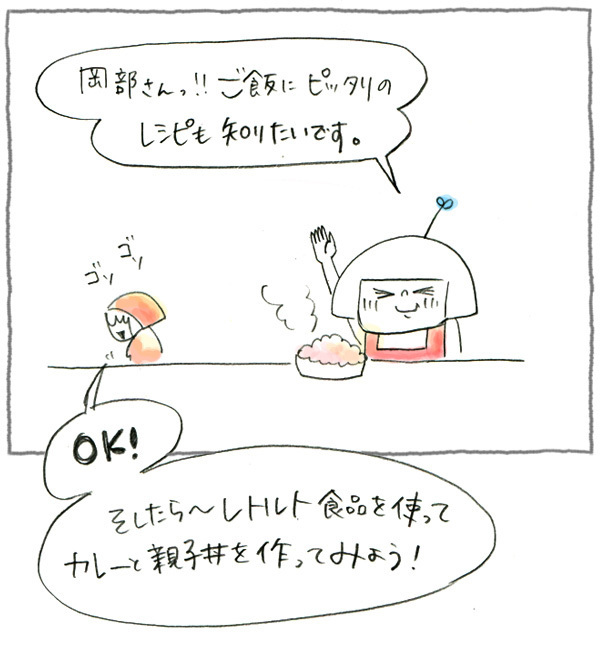 岡部さんっ!! ご飯に ピッタリの
レシピも 知りたいです。
ゴソ
ゴソ
OK!
そしたら〜レトルト食品を使って
カレーと親子丼を作ってみよう!